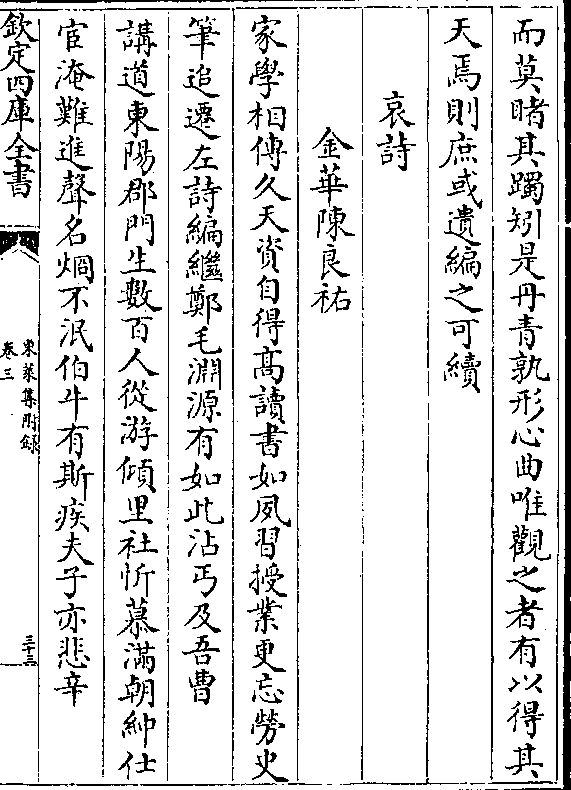 而莫睹其躅矧是丹青孰形心曲唯觀之者有以得其
天焉則庶或遺編之可續
哀詩
金華陳良祐
家學相傳久天資自得髙讀書如夙習授業更忘勞史
筆追遷左詩編繼鄭毛淵源有如此沾丐及吾曹
講道東陽郡門生數百人從游傾里社忻慕滿朝紳仕
宦淹難進聲名烱不泯伯牛有斯疾夫子亦悲辛
欽定四庫全書
東萊集附録
卷三
三十三